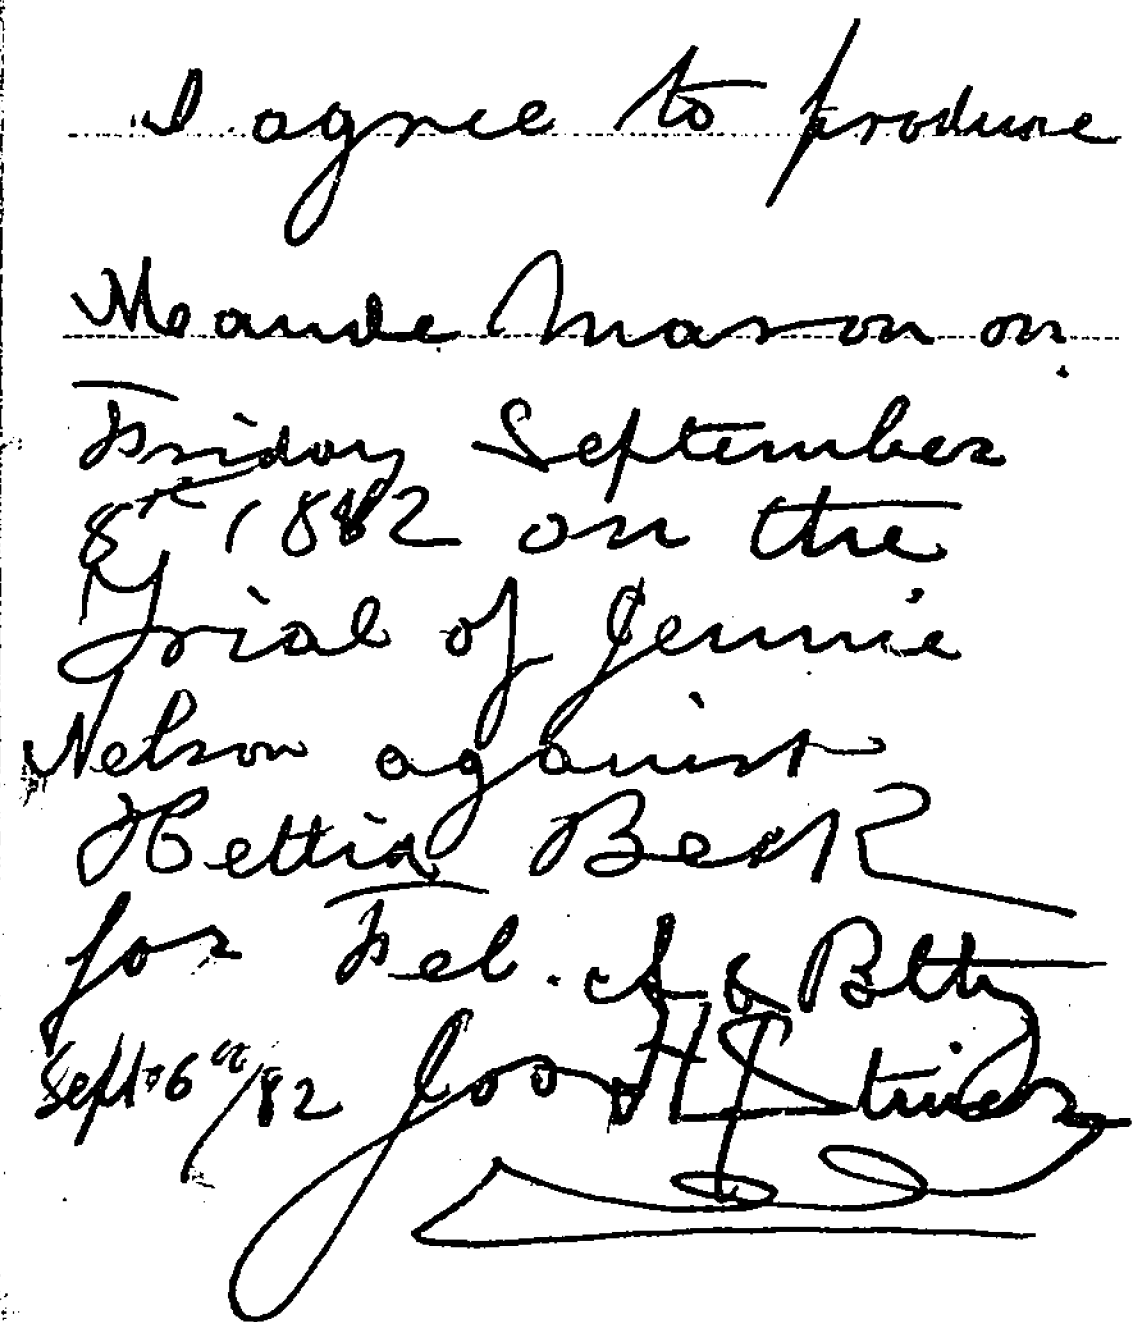 I agree to produce
Meaude Mason on
Friday September
8th 1882 on the
Trial of Jennie
Nelson against
Hettia Beck
for Fel. A & Btty
Sept 6th/82 Jos H